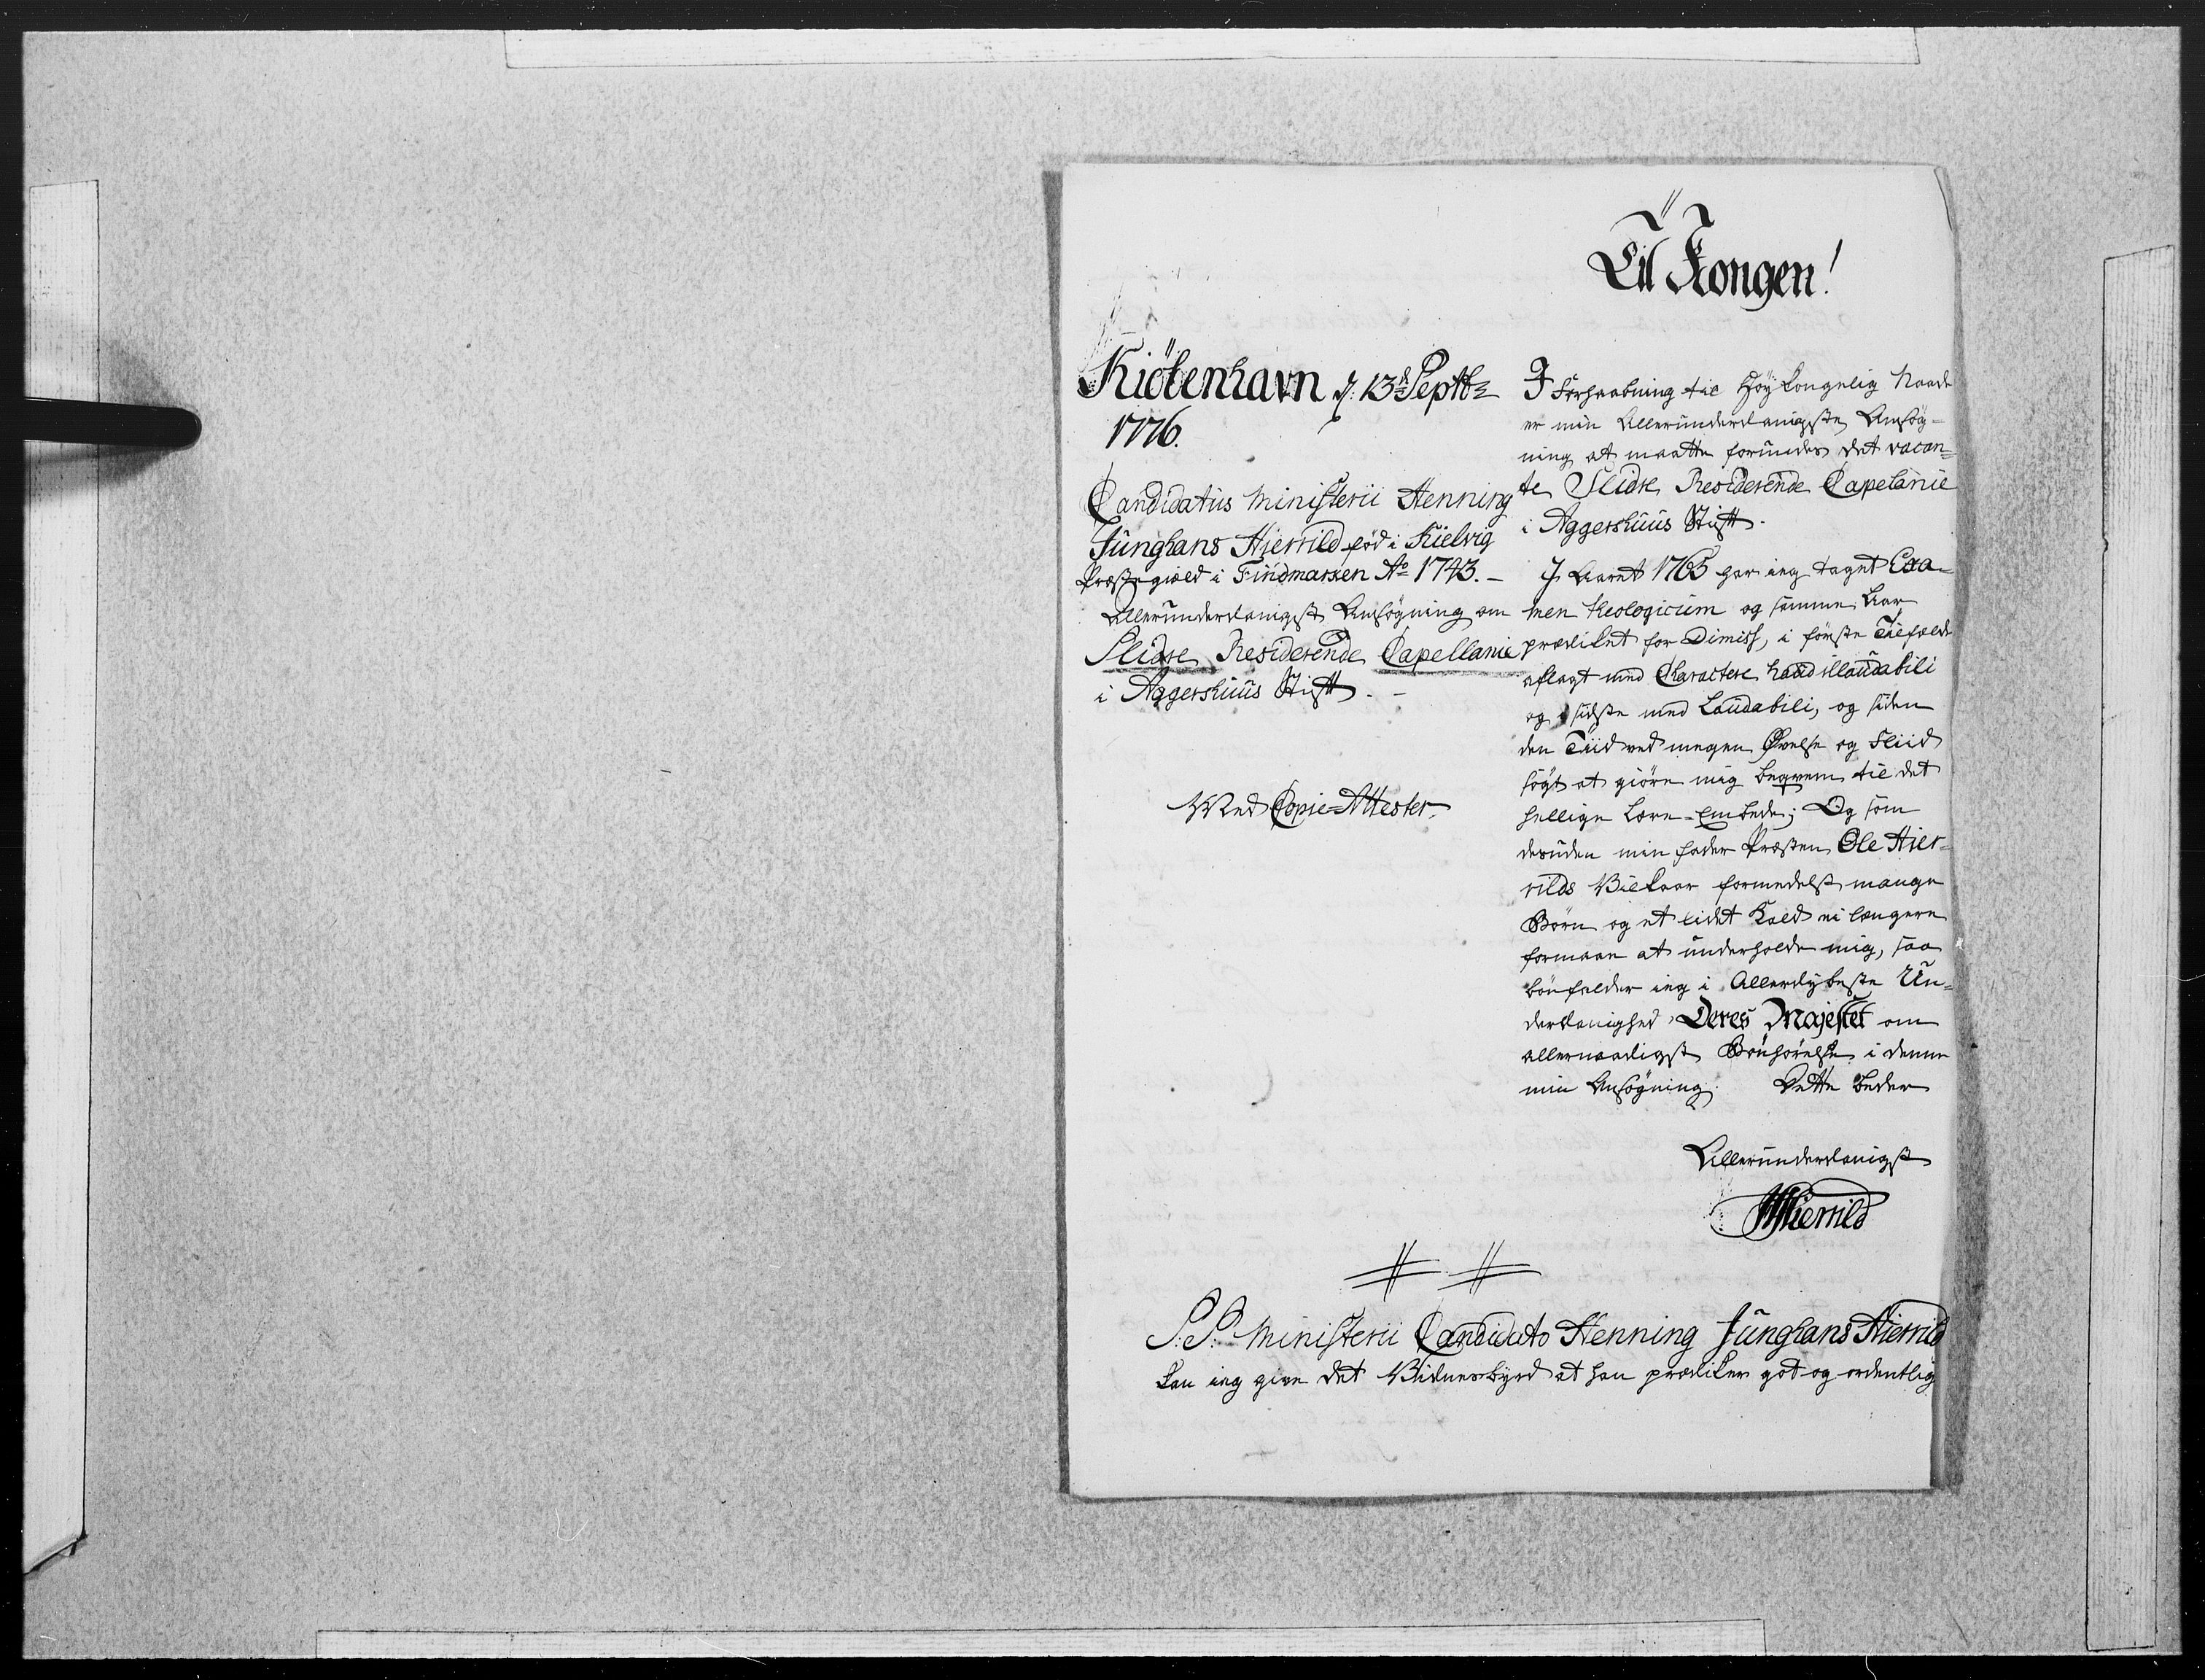 Til Kongen!
Kiöbenhavn d. 13de Septbr
1776.
Candidatus Ministerii Henning
Junghans Hierrild fød i Kielvig
Præstegield i Findmarken Ao 1743. –
Allerunderdanigst Ansøgning om
Slidre Residerende Capellanie
i Aggershuus Stift. –
Med Copie-Attester.
I Forhaabning til Høy Kongelig Naade
er min Allerunderdanigste Ansøg=
ning at maatte forundes det vacan=
te Slidre Residerende Capelanie
i Aggershuus Stift.
I Aaret 1765 har ieg taget Exa=
men theologicum og samme Aar
prædiket for Dimiss, i første Tilfælde
aflagt med Charactere haud illaudabili
og i sidste med Laudabili, og siden
den Tiid ved megen Øvelse og Fliid
søgt at giøre mig beqvem til det
hellige Lære-Embede; Og som
desuden min fader Præsten Ole Hier=
rilds Vilkaar formedelst mange
Børn og et lidet Kald ei længere
formaae at underholde mig, saa
bønfalder ieg i Allerdybeste Un=
derdanighed Deres Majestet om
allernaadigst Bønhørelse i denne
min Ansøgning. Dette beder
Allerunderdanigst
HHierrild
S: S: Ministerii Candidato Henning Junghans Hierrild
kan ieg give det Vidnesbyrd at han prædiker got og ordentlig